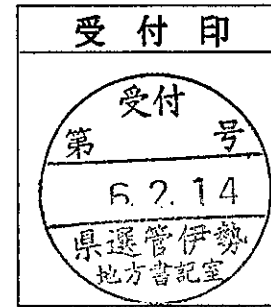 受付印
受付
第 号
6.2.14
県選管伊勢
地方書記室